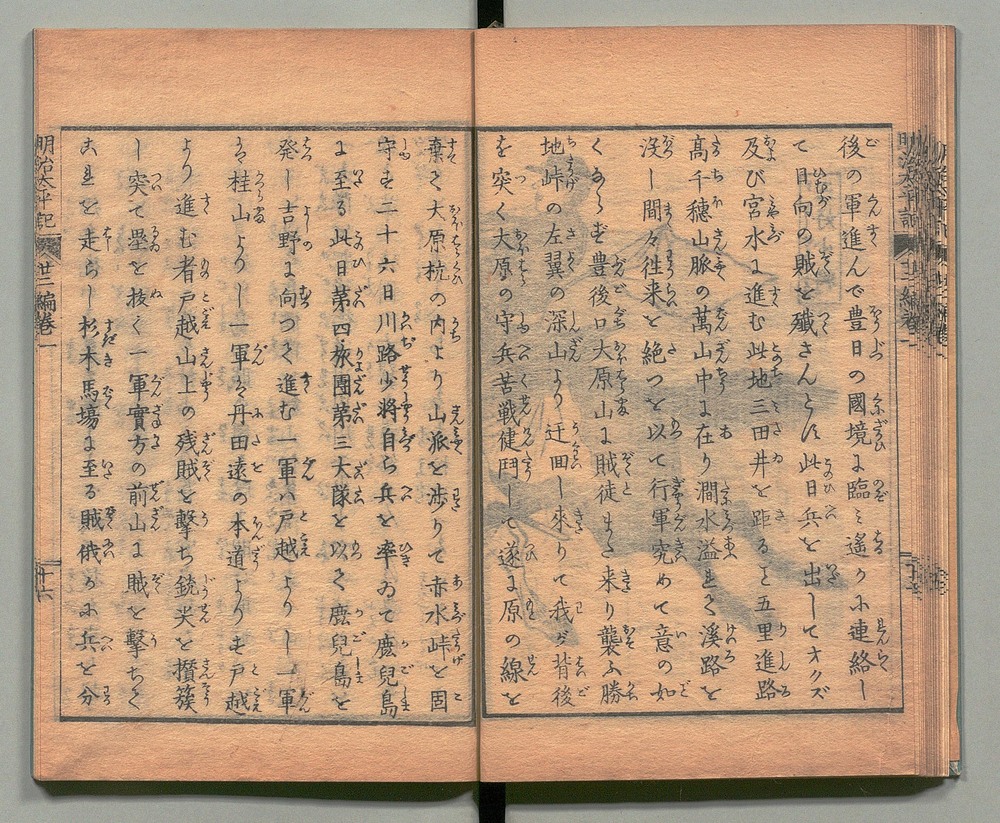 後の軍進んで豊日の國境に臨ミ遙カに連絡し
て日向の賊を殲さんとス此日兵を出してオクズ
及び宮水に進む此地三田井を距ると五里進路
髙千穗山脈の萬山中に在り澗水溢れて溪路を
没し間々徃来を絶つを以て行軍究めて意の如
くあらず豊後口大原山に賊徒また来り襲ふ勝
地峠の左翼の深山より迂囬し來りて我ガ背後
を突く大原の守兵苦戦健鬥して遂に原の線を
棄て大原杭の内より山派を渉りて赤水峠を固
守す二十六日川路少將自ち兵を率ゐて鹿兒島
に至る此日第四旅團第三大隊を以て鹿兒島を
発し吉野に向つて進む一軍ハ戸越より一軍
は桂山より一軍は丹田遠の本道よりも戸越
より進む者戸越山上の残賊を擊ち銃尖を攅簇
し突て壘を抜く一軍實方の前山に賊を擊ちて
之れを走らし杉木馬塲に至る賊俄カに兵を分
明治太平記
廿二編卷一
十六